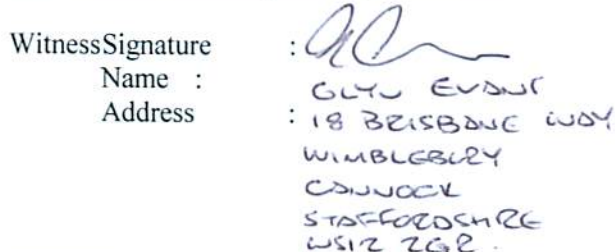 WitnessSignature :
Name : GLYN EVANS
Address : 18 BRISBANE WAY
WIMBLEBURY
CANNOCK
STAFFORDSHIRE
WS12 2GR.